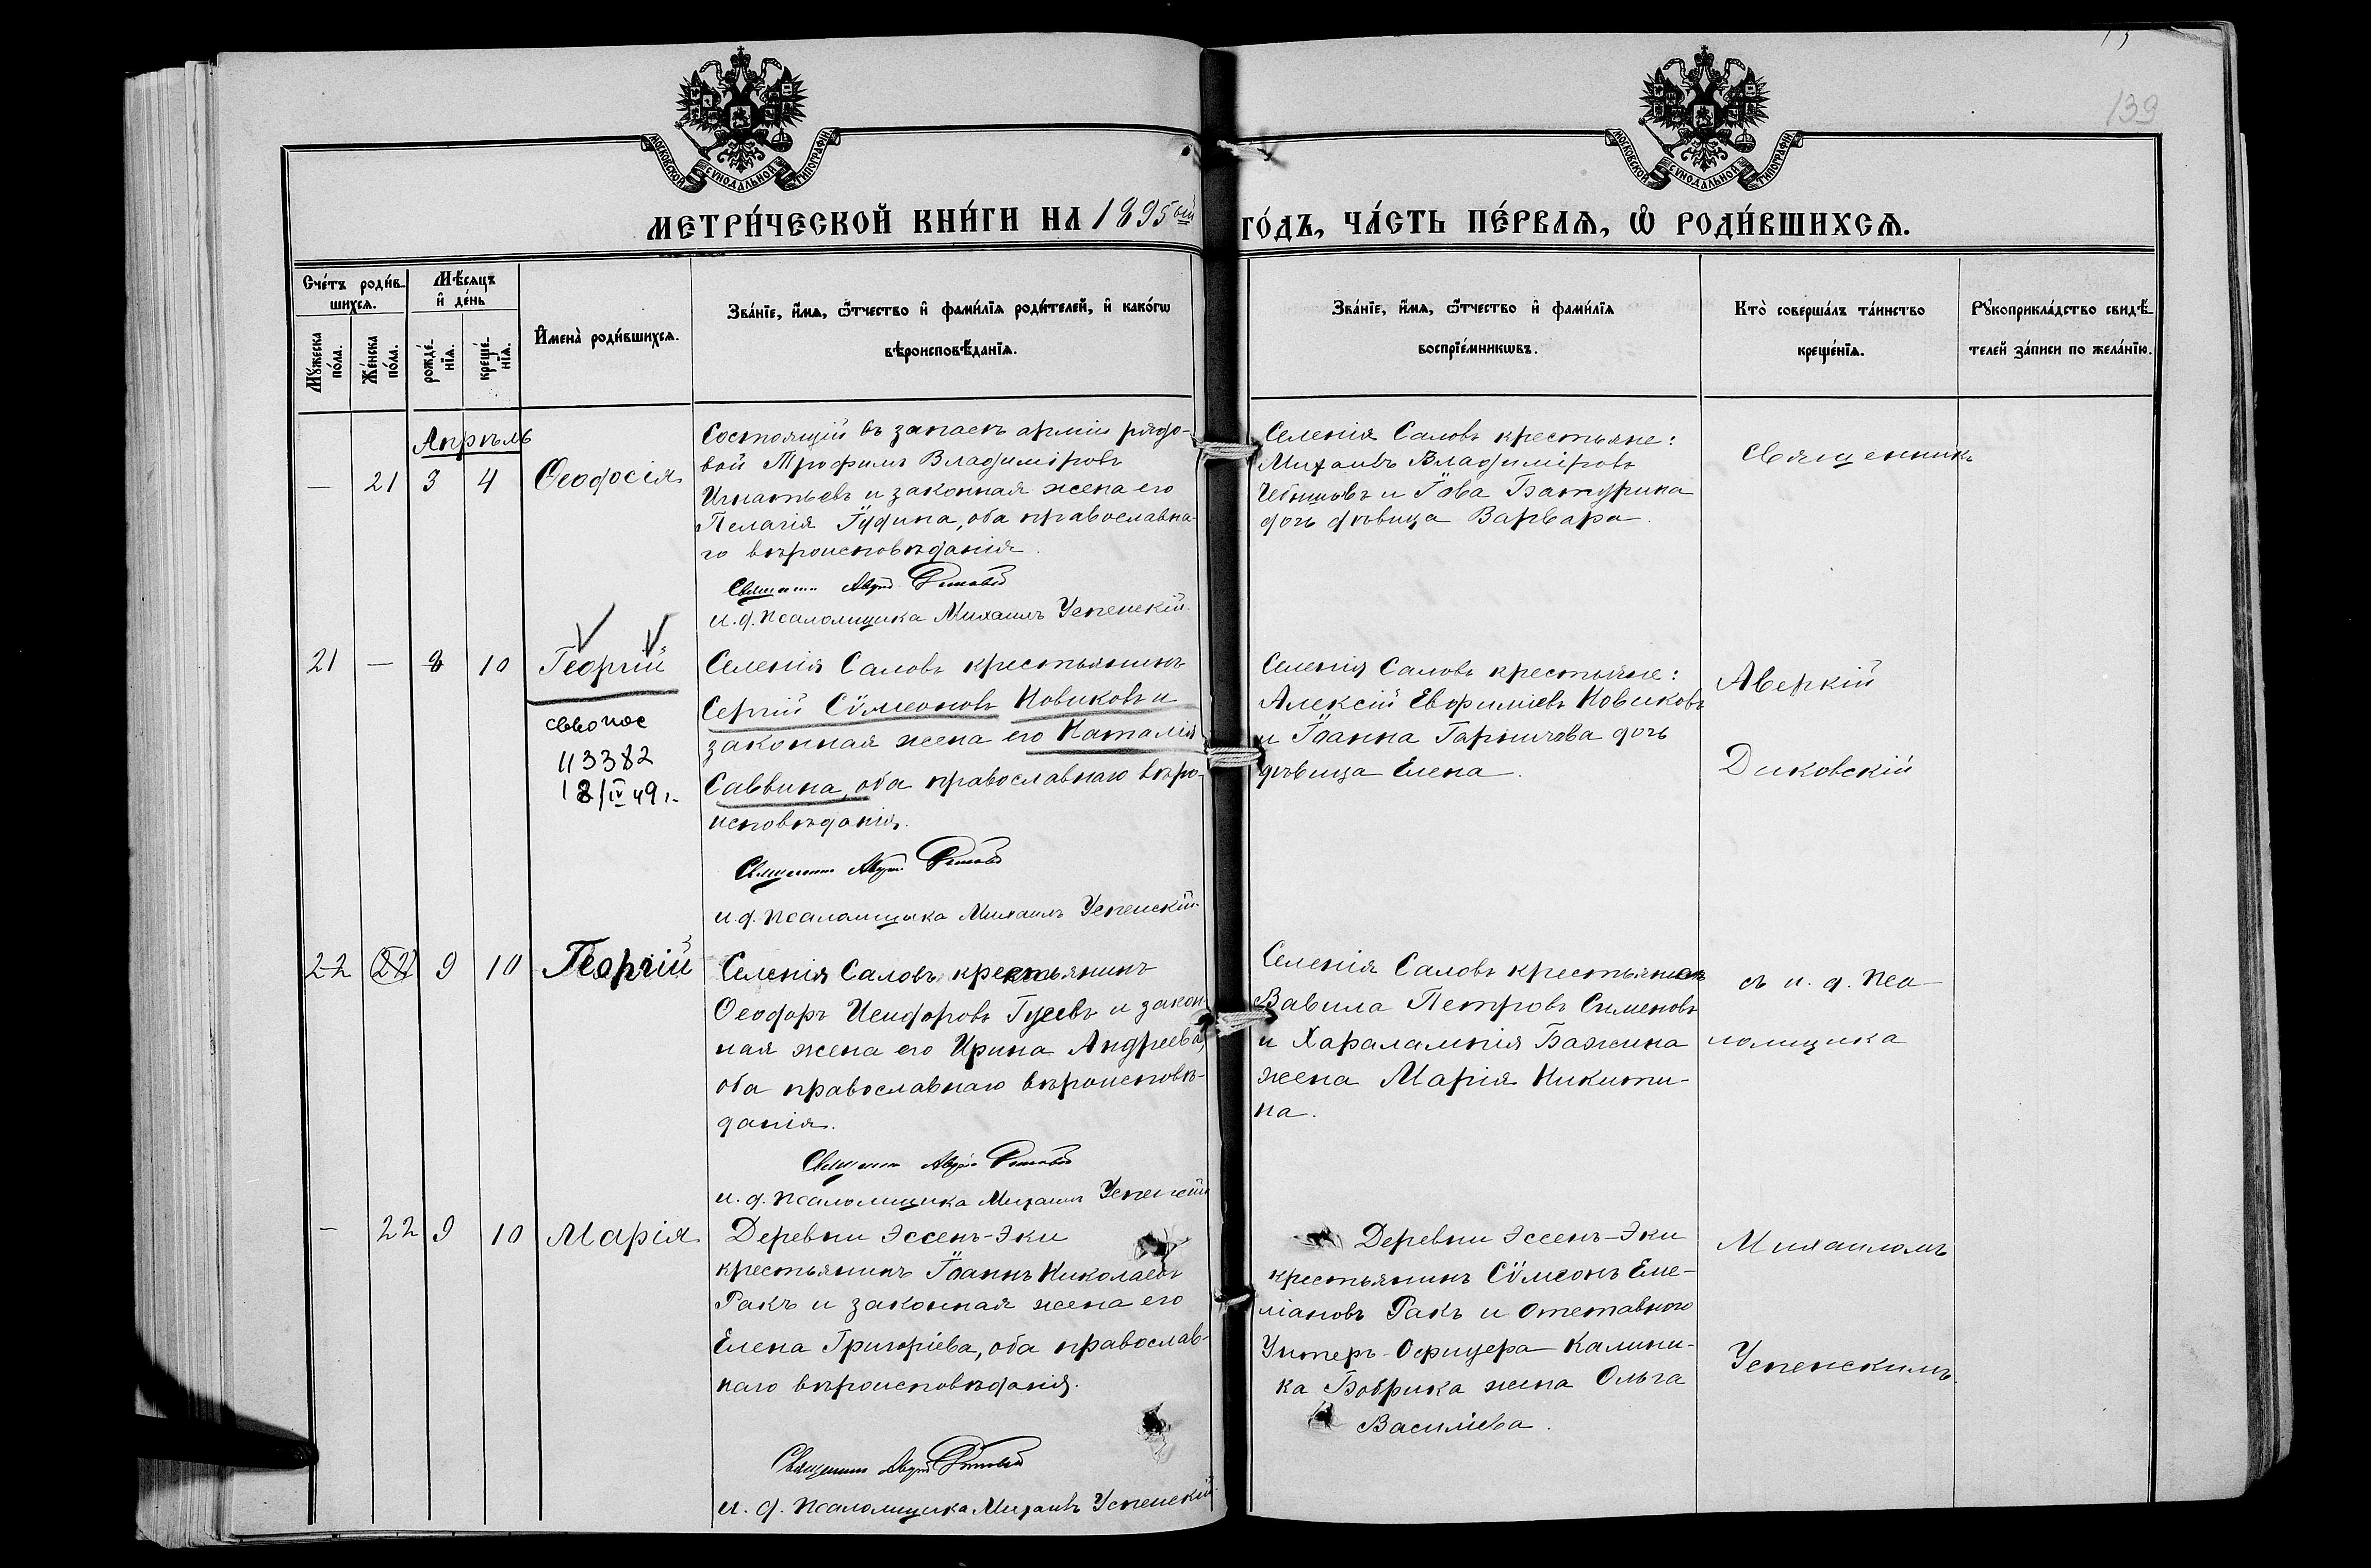 139
МОСКОВСКОЙ СУНОДАЛЬНОЙ ТИПОГРАФІИ
МОСКОВСКОЙ СУНОДАЛЬНОЙ ТИПОГРАФІИ
МЕТРИ́ЧЕСКОЙ КНИ́ГИ НА 1895 ый ГО́ДЪ, ЧА́СТЬ ПЕ́РВАѦ, Ѡ҆ РОДИ́ВШИХСѦ.
Сче́тъ роди́в-
шихсѧ.
Мѣ́сѧцъ
и҆ де́нь
Мꙋ́жеска
по́ла.
Же́нска
по́ла.
рожде́-
нїѧ.
креще́-
нїѧ.
И҆мена̀ роди́вшихсѧ.
Зва́нїе, и҆́мѧ, ѻ҆́тчество и҆ фами́лїѧ роди́телей, и҆ како́гѡ
вѣроисповѣ́данїѧ.
Зва́нїе, и҆́мѧ, ѻ҆́тчество и҆ фами́лїѧ
воспрїе́мникѡвъ.
Кто̀ соверша́лъ та́инство
креще́нїѧ.
Рꙋкоприкла́дство свидѣ́-
телей за́писи по жела́нїю.
Апрѣль
— 21 3 4 Ѳеодосія
Состоящій въ запасѣ арміи рядо-
вой Трофимъ Владиміровъ
Игнатьевъ и законная жена его
Пелагія Іудина, оба православна-
го вѣроисповѣданія.
Священникъ
и. д. псаломщика Михаилъ Успенскій.
Селенія Саловъ крестьяне:
Михаилъ Владиміровъ
и Іова Батурина
дочь дѣвица Варвара.
Священникъ
21 — 8 10 Георгій
113382
18/IV 49 г.
Селенія Саловъ крестьянинъ
Сергій Сѵмеоновъ Новиковъ и
законная жена его Наталія
Саввина, оба православнаго вѣро-
исповѣданія.
Священникъ
и. д. псаломщика Михаилъ Успенскій.
Селенія Саловъ крестьяне:
Алексій Евфиміевъ Новиковъ
и Іоанна дочь
дѣвица Елена.
Аверкій
Диковскій
22 22 9 10 Георгій
Селенія Саловъ крестьянинъ
Ѳеодоръ Исидоровъ Гусевъ и закон-
ная жена его Ирина Андреева,
оба православнаго вѣроисповѣ-
данія.
Священникъ
и. д. псаломщика Михаилъ Успенскій
Селенія Саловъ крестьянинъ
Вавила Петровъ Сименовъ
и Харалампія Бажина
жена Марія Никити-
на.
съ и. д. пса-
ломщика
— 22 9 10 Марія
Деревни Эссенъ-Эки
крестьянинъ Іоаннъ Николаевъ
Ракъ и законная жена его
Елена Григоріева, оба православ-
наго вѣроисповѣданія.
Священникъ
и. д. псаломщика Михаилъ Успенскій
Деревни Эссенъ-Эки
крестьянинъ Сѵмеонъ Еме-
ліановъ Ракъ и отставного
Унтеръ-Офицера Калини-
ка Бобрика жена Ольга
Василіева.
Михаиломъ
Успенскимъ.